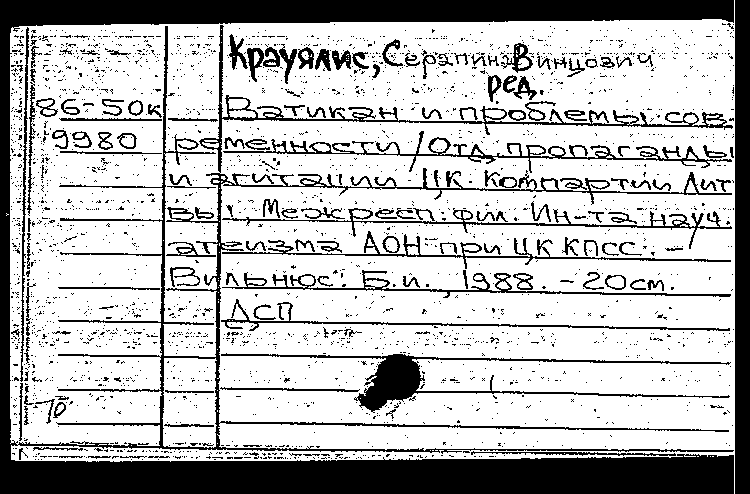 Крауялис, Серапинас Винцович
ред.
86-50к Ватикан и проблемы сов-
9980 ременности / Отд. пропаганды
и агитации ЦК Компартии Лит
вы, Межресп. фил. Ин-та науч.
атеизма АОН при ЦК КПСС. -
Вильнюс: Б.и., 1988. - 20 см.
ДСП